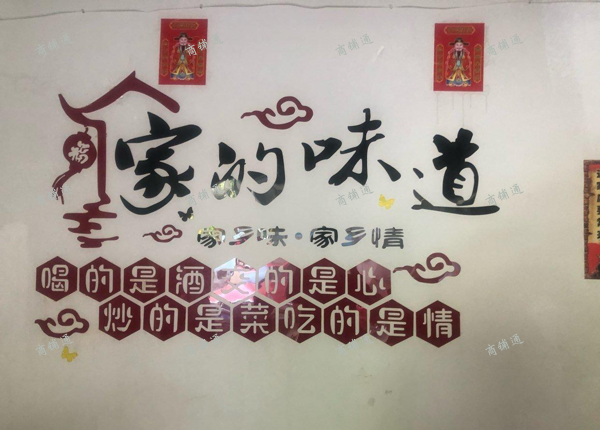 家的味道
家乡味·家乡情
喝的是酒 的是心
炒的是菜吃的是情
商铺通
商铺通
商铺通
商铺通
商铺通
商铺通
商铺通